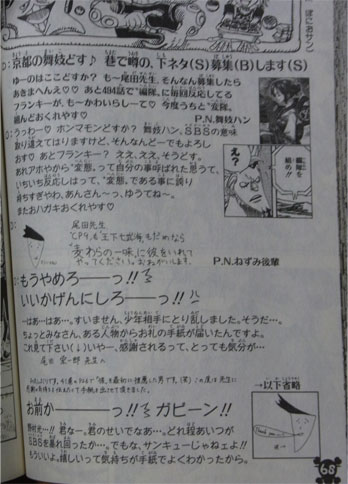 D:京都の舞妓どす♪ 巷で噂の、下ネタ(S)募集(B)します(S)
ゆーのはここどすか? も一尾田先生。そんなん募集したら
あきまへんえ♡♡ あと494話で"編隊"に毎回反応してる
フランキーが、も一かわいらし一て♡ 今度うちと"変隊"
組んどおくれやす♡ P.N.舞妓ハン
O:うっわー♡ ホンマモンどすか? 舞妓ハン、SBSの意味
取り違えてはりますけど、そんなんど一でもよろし
おす♡ あとフランキー? ええ、ええ、そうどす。
あれアホやから"変態"って自分の事呼ばれた思うて、
いちいち反応しはって、"変態"である事に誇り
持ちすぎやわ、あんさん~っ、ゆうてね~。
またおハガキおくれやす♡
え?
編隊を組め!!
D:
尾田先生
CP9も王下七武海もだめなら
"麦わらの一味"に彼をいれて
やってください。
P.N.ねずみ後輩
O:もうやめろーーっ!!
いいかげんにしろーーっ!!
―はあ―はあ…。すいません、少年相手にとり乱しました。そうだ…。
ちょっとみなさん、ある人物からお礼の手紙が届いたんですよ。
これ見て下さい(↓)いやー、感謝されるって、とっても気分が…
尾田栄一郎先生へ
→以下省略
お前かーーーっ!! ガビーン!!
野村光…!! 君なー。君のせいでなあ…。どれ程あいつが
SBSを暴れ回ったか…。でもな、サンキューじゃねェよ!!
もういいよ。嬉しいって気持ちが手紙でよくわかったから。
68